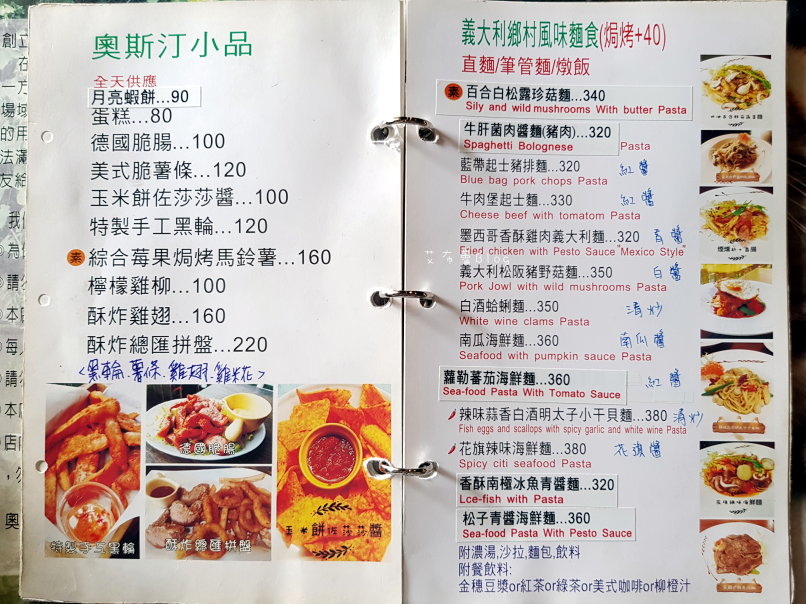 奧斯汀小品
全天供應
月亮蝦餅...90
蛋糕...80
德國脆腸...100
美式脆薯條...120
玉米餅佐莎莎醬...100
特製手工黑輪...120
素 綜合莓果焗烤馬鈴薯...160
檸檬雞柳...100
酥炸雞翅...160
酥炸總匯拼盤...220
<黑輪、薯條、雞翅、雞柳>
德國脆腸
特製手工黑輪
酥炸總匯拼盤
玉米餅佐莎莎醬
義大利鄉村風味麵食(焗烤+40)
直麵/筆管麵/燉飯
素 百合白松露珍菇麵...340
Sily and wild mushrooms With butter Pasta
牛肝菌肉醬麵(豬肉)...320
Spaghetti Bolognese Pasta
藍帶起士豬排麵...320 紅醬
Blue bag pork chops Pasta
牛肉堡起士麵...330 紅醬
Cheese beef with tomatom Pasta
墨西哥香酥雞肉義大利麵...320 青醬
Fried chicken with Pesto Sauce "Mexico Style"
義大利松阪豬野菇麵...350 白醬
Pork Jowl with wild mushrooms Pasta
白酒蛤蜊麵...350 清炒
White wine clams Pasta
南瓜海鮮麵...360 南瓜醬
Seafood with pumpkin sauce Pasta
蘿勒蕃茄海鮮麵...360 紅醬
Sea-food Pasta With Tomato Sauce
辣味蒜香白酒明太子小干貝麵...380 清炒
Fish eggs and scallops with spicy garlic and white wine Pasta
花旗辣味海鮮麵...380 花旗醬
Spicy citi seafood Pasta
香酥南極冰魚青醬麵...320
Lce-fish with Pasta
松子青醬海鮮麵...360
Sea-food Pasta With Pesto Sauce
附濃湯,沙拉,麵包,飲料
附餐飲料:
金穗豆漿or紅茶or綠茶or美式咖啡or柳橙汁